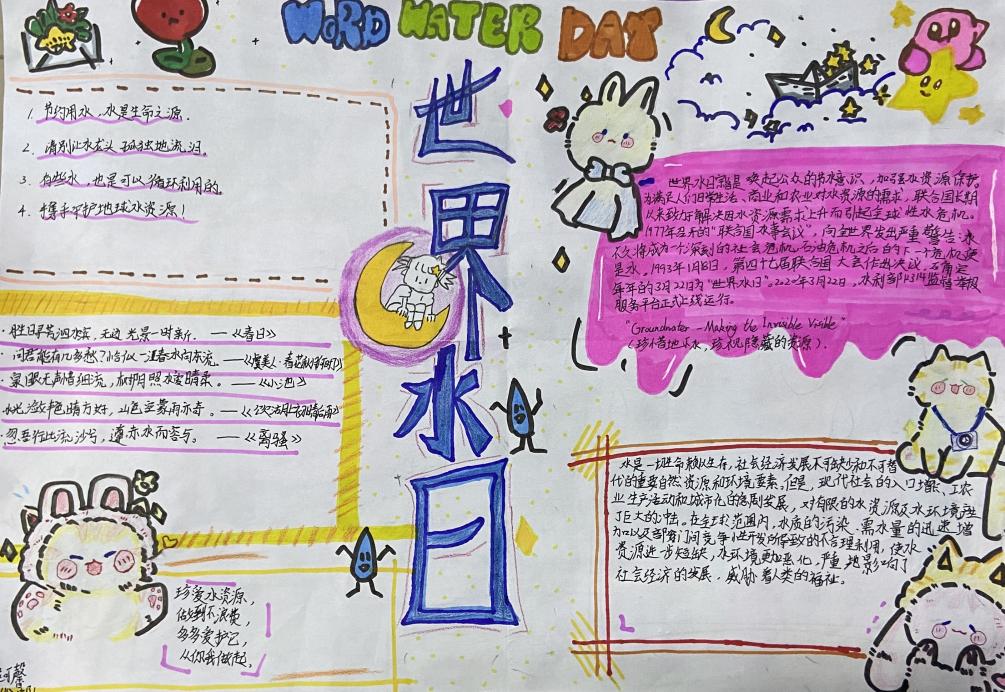 WORD WATER DAY
世界水日
1. 节约用水，水是生命之源.
2. 请别让水龙头孤独地流泪.
3. 有些水，也是可以循环利用的.
4. 携手守护地球水资源！
·胜日寻芳泗水宾，无边光景一时新. ——《春日》
·问君能有几多愁？恰似一江春水向东流. ——《虞美人·春花秋月何时了》
·泉眼无声惜细流，树阴照水爱晴柔。 ——《小池》
水光潋滟晴方好，山色空蒙雨亦奇。 ——《饮湖上初晴后雨》
·忽吾行此流沙兮，遵赤水而容与。 ——《离骚》
珍爱水资源，
做到不浪费，
多多爱护它，
从你我做起.
世界水日旨是唤起公众的节水意识，加强水资源保护。
为满足人们日常生活、商业和农业对水资源的需求，联合国长期
以来致力于解决因水资源需求上升而引起全球性水危机。
1977年召开的"联合国水事会议"，向全世界发出严重警告：水
不久将成为一个深刻的社会危机，石油危机之后的下一危机便
是水，1993年1月18日，第四十七届联合国大会作出决议，确定
每年的3月22日为"世界水日"。2020年3月22日，水利部12314监督举报
服务平台正式上线运行。
"Groundwater - Making the Invisible Visible"
（珍惜地下水，珍视隐藏的资源）.
水是一切生命赖以生存，社会经济发展不可缺少和不可替
代的重要自然资源和环境要素，但是，现代社会的人口增长、工农
业生产活动和城市化的急剧发展，对有限的水资源及水环境产
生了巨大的冲击。在全球范围内，水质的污染、需水量的迅速增
加以及部门间竞争性开发所导致的不合理利用，使水
资源进一步短缺，水环境更加恶化，严重地影响了
社会经济的发展，威胁着人类的福祉。